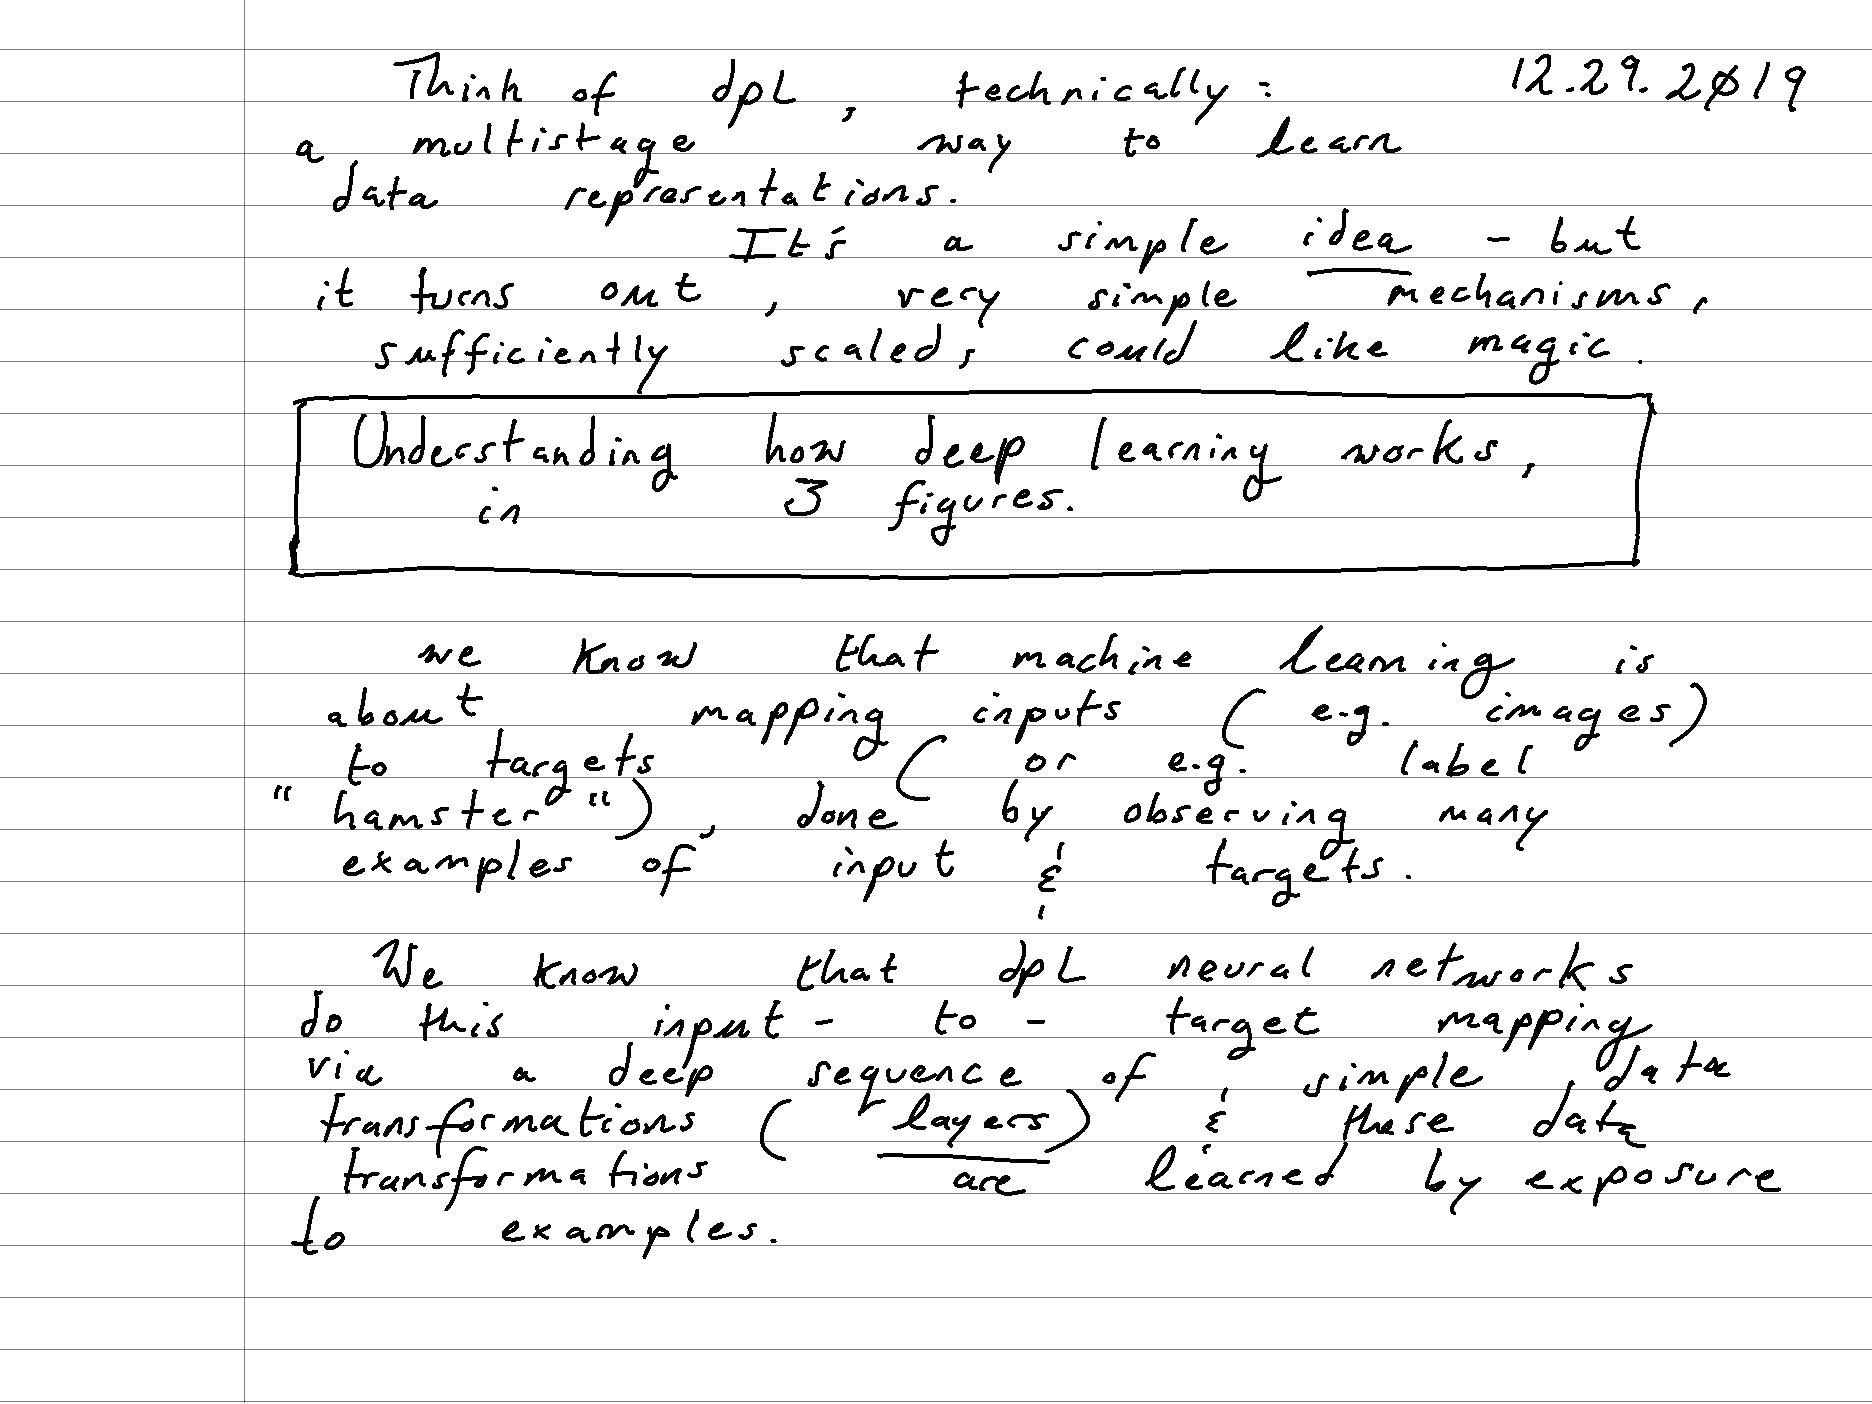 Think of dpL, technically: 12.29.2019
a multistage way to learn
data representations.
It's a simple idea - but
it turns out, very simple mechanisms,
sufficiently scaled, could like magic.
Understanding how deep learning works,
in 3 figures.
we know that machine learning is
about mapping inputs (e.g. images)
to targets (or e.g. label
"hamster"), done by observing many
examples of input & targets.
We know that dpL neural networks
do this input-to-target mapping
via a deep sequence of simple data
transformations (layers) & these data
transformations are learned by exposure
to examples.